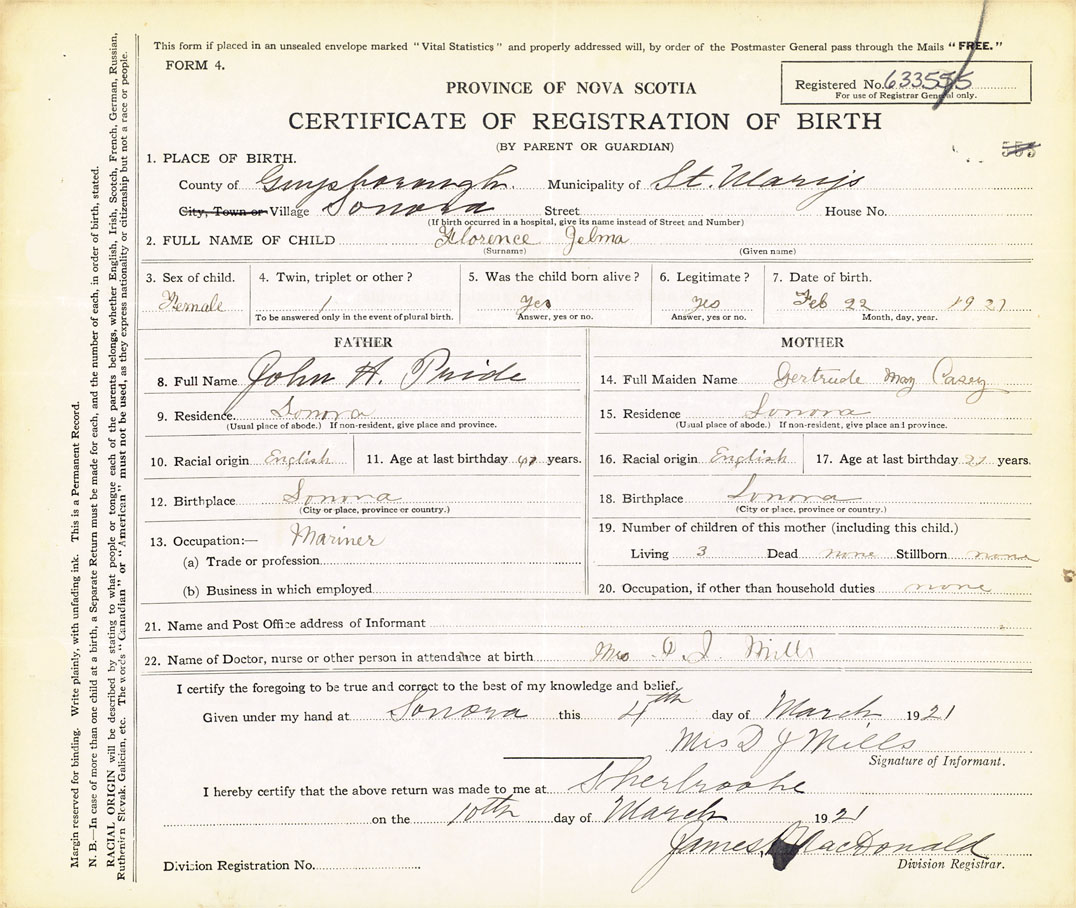 This form if placed in an unsealed envelope marked "Vital Statistics" and properly addressed will, by order of the Postmaster General pass through the Mails "FREE."
FORM 4.
Registered No. 633555
For use of Registrar General only.
PROVINCE OF NOVA SCOTIA
CERTIFICATE OF REGISTRATION OF BIRTH
(BY PARENT OR GUARDIAN)
555
1. PLACE OF BIRTH.
County of Guysborough. Municipality of St. Marys
City, Town or Village Sonora Street House No.
(If birth occurred in a hospital, give its name instead of Street and Number)
2. FULL NAME OF CHILD Florence Jelma
(Surname) (Given name)
3. Sex of child. 4. Twin, triplet or other? 5. Was the child born alive? 6. Legitimate? 7. Date of birth.
Female 1 Yes Yes Feb 22 1921
To be answered only in the event of plural birth. Answer, yes or no. Answer, yes or no. Month, day, year.
FATHER MOTHER
8. Full Name John H. Pride 14. Full Maiden Name Gertrude May Casey
9. Residence. Sonora 15. Residence Sonora
(Usual place of abode.) If non-resident, give place and province. (Usual place of abode.) If non-resident, give place and province.
10. Racial origin English 11. Age at last birthday years. 16. Racial origin English 17. Age at last birthday years.
12. Birthplace Sonora 18. Birthplace Sonora
(City or place, province or country.) (City or place, province or country.)
13. Occupation:— Mariner 19. Number of children of this mother (including this child.)
(a) Trade or profession Living 3 Dead none Stillborn none
(b) Business in which employed 20. Occupation, if other than household duties none
21. Name and Post Office address of Informant
22. Name of Doctor, nurse or other person in attendance at birth Mrs D J Mills
I certify the foregoing to be true and correct to the best of my knowledge and belief.
Given under my hand at Sonora this 4th day of March 1921
Mrs D J Mills
Signature of Informant.
I hereby certify that the above return was made to me at Sherbrooke
on the 10th day of March 1921
James MacDonald
Division Registration No. Division Registrar.
Margin reserved for binding. Write plainly, with unfading ink. This is a Permanent Record.
N. B.—In case of more than one child at a birth, a Separate Return must be made for each, and the number of each, in order of birth, stated.
RACIAL ORIGIN will be described by stating to what people or tongue each of the parents belongs, whether English, Irish, Scotch, French, German, Russian,
Ruthenirn Slovak, Galician, etc. The words "Canadian" or "American" must not be used, as they express nationality or citizenship but not a race or people.